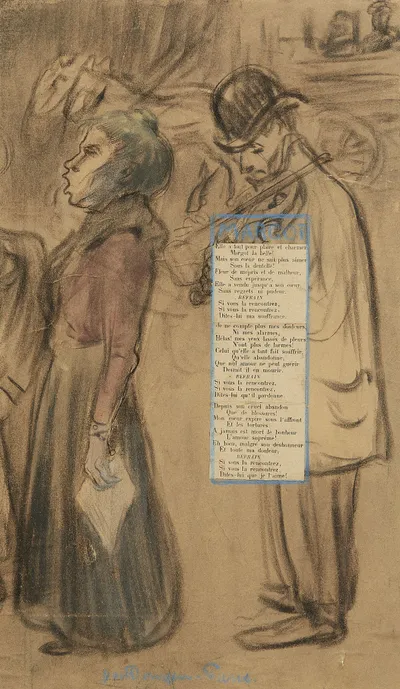 Elle a tout pour plaire et charmer
Margot la belle!
Mais son cœur ne sait plus aimer
Sous la dentelle!
Fleur de mépris et de malheur,
Sans espérance,
Elle a vendu jusqu'à son cœur,
Sans regrets ni pudeur.
REFRAIN
Si vous la rencontrez,
Si vous la rencontrez,
Dites-lui ma souffrance.
Je ne compte plus mes douleurs,
Ni mes alarmes,
Hélas! mes yeux lassés de pleurs
N'ont plus de larmes!
Celui qu'elle a tant fait souffrir,
Qu'elle abandonne,
Que nul amour ne peut guérir
Devrait il en mourir.
REFRAIN
Si vous la rencontrez,
Si vous la rencontrez,
Dites-lui qu'il pardonne
Depuis son cruel abandon
Que de blessures!
Mon cœur expire sous l'affront
Et les tortures
A jamais est mort le bonheur
L'amour suprême!
Eh bien, malgré son déshonneur
Et toute ma douleur,
REFRAIN
Si vous la rencontrez,
Si vous la rencontrez
Dites-lui que je l'aime!